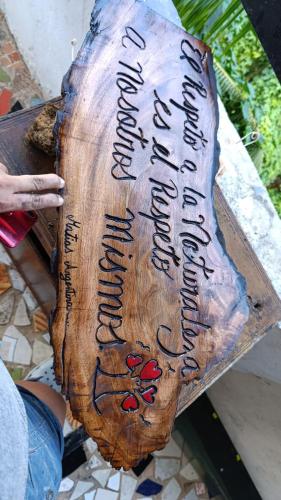 El Respeto a la Naturaleza
es el Respeto
a nosotros Mismos